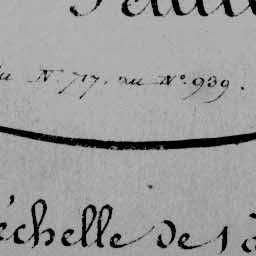 du N.º 717. au N.º 939.
échelle de 1 à